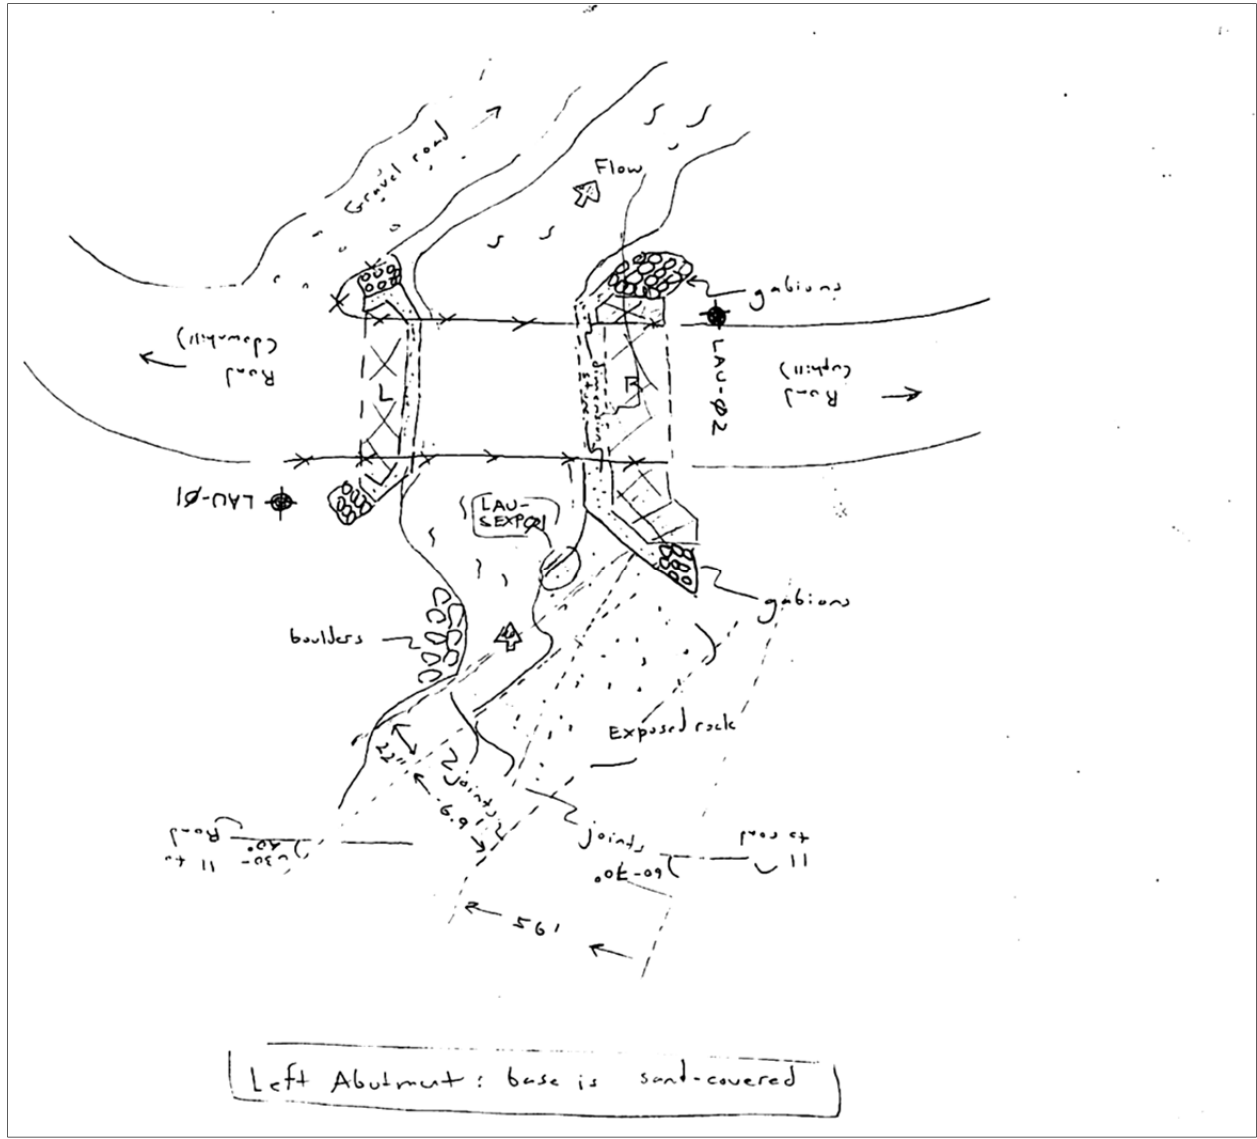 Gravel road
Flow
gabions
Road
(downhill)
L
R
LAU-Ø2
Road
(uphill)
LAU-Ø1
LAU-
SEXPØ1
gabions
boulders
Exposed rock
22"
joints
joints
Road
11 to
~30-
40°
60-70°
11
to road
Left Abutment: base is sand-covered